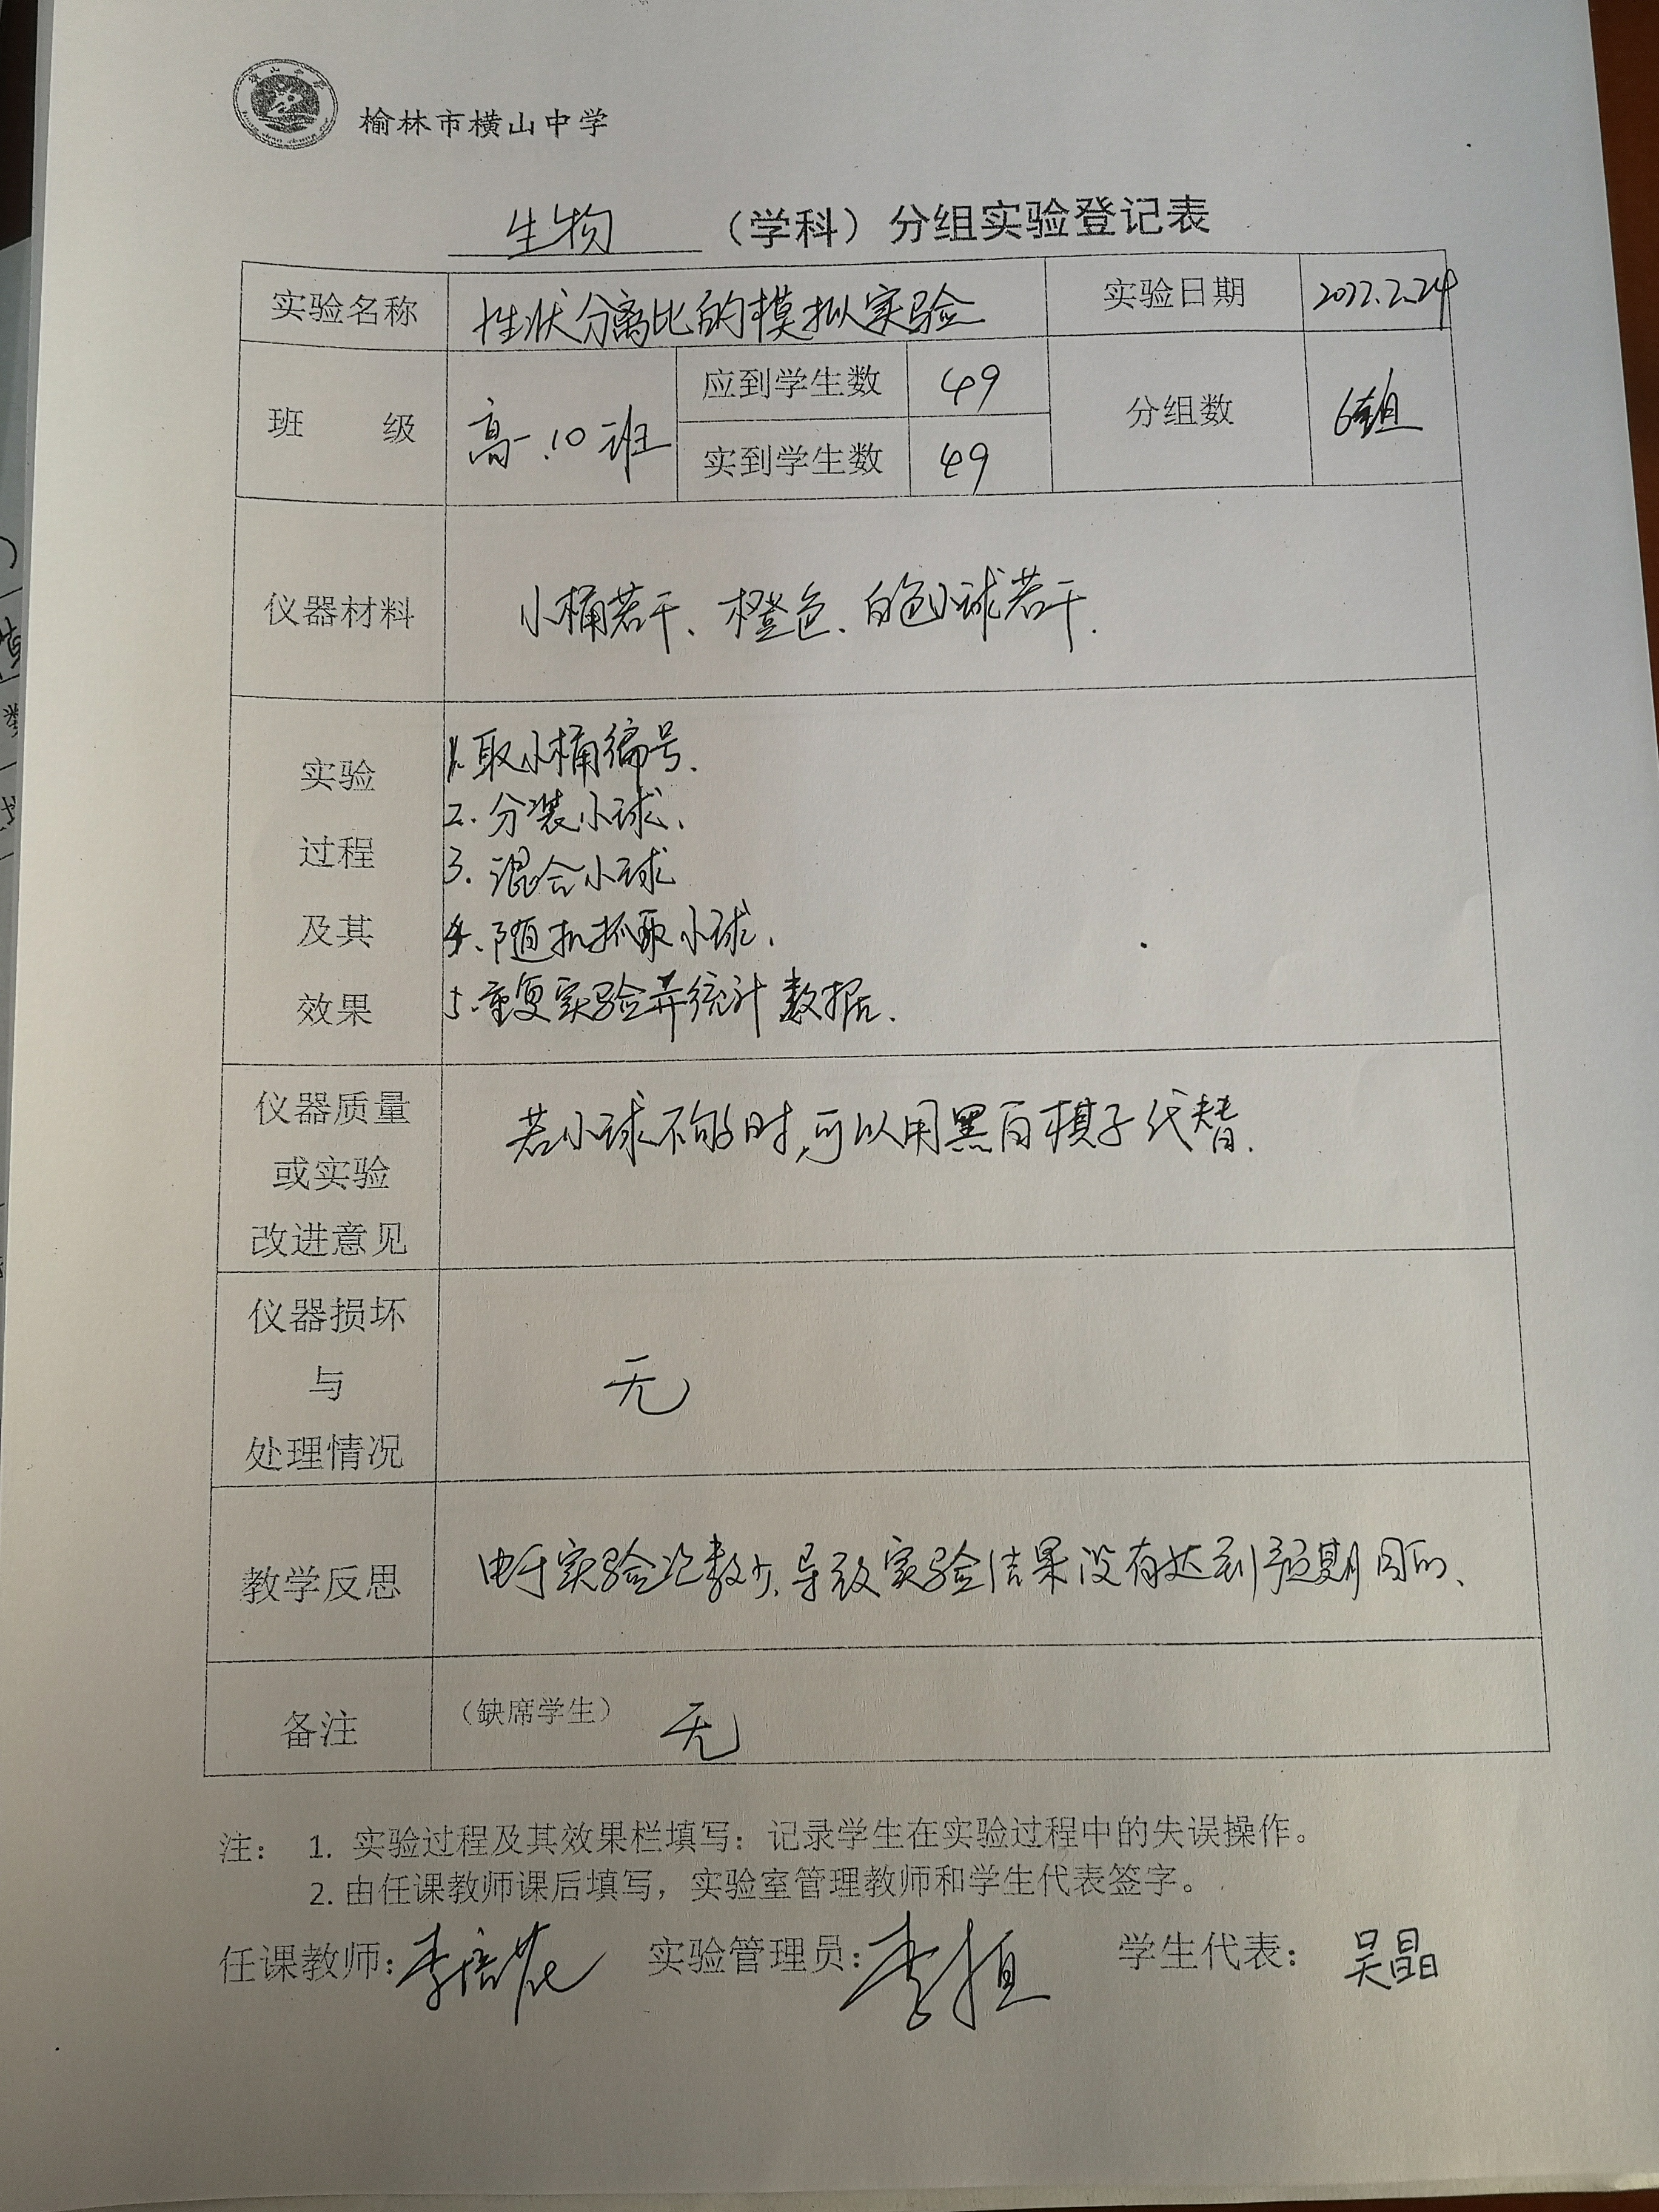 榆林市横山中学
生物（学科）分组实验登记表
实验名称 性状分离比的模拟实验 实验日期 2022.2.24
班 级 高一.10班 应到学生数 49 分组数 6组
实到学生数 49
仪器材料 小桶若干、橙色、白色小球若干.
实验
过程
及其
效果
1.取小桶编号.
2.分装小球.
3.混合小球
4.随机抓取小球.
5.重复实验并统计数据.
仪器质量
或实验
改进意见
若小球不够时,可以用黑白棋子代替.
仪器损坏
与
处理情况
无
教学反思 由于实验次数少,导致实验结果没有达到预期目的、
备注 （缺席学生） 无
注： 1. 实验过程及其效果栏填写：记录学生在实验过程中的失误操作。
2.由任课教师课后填写，实验室管理教师和学生代表签字。
任课教师: 李 实验管理员: 李 学生代表： 吴晶